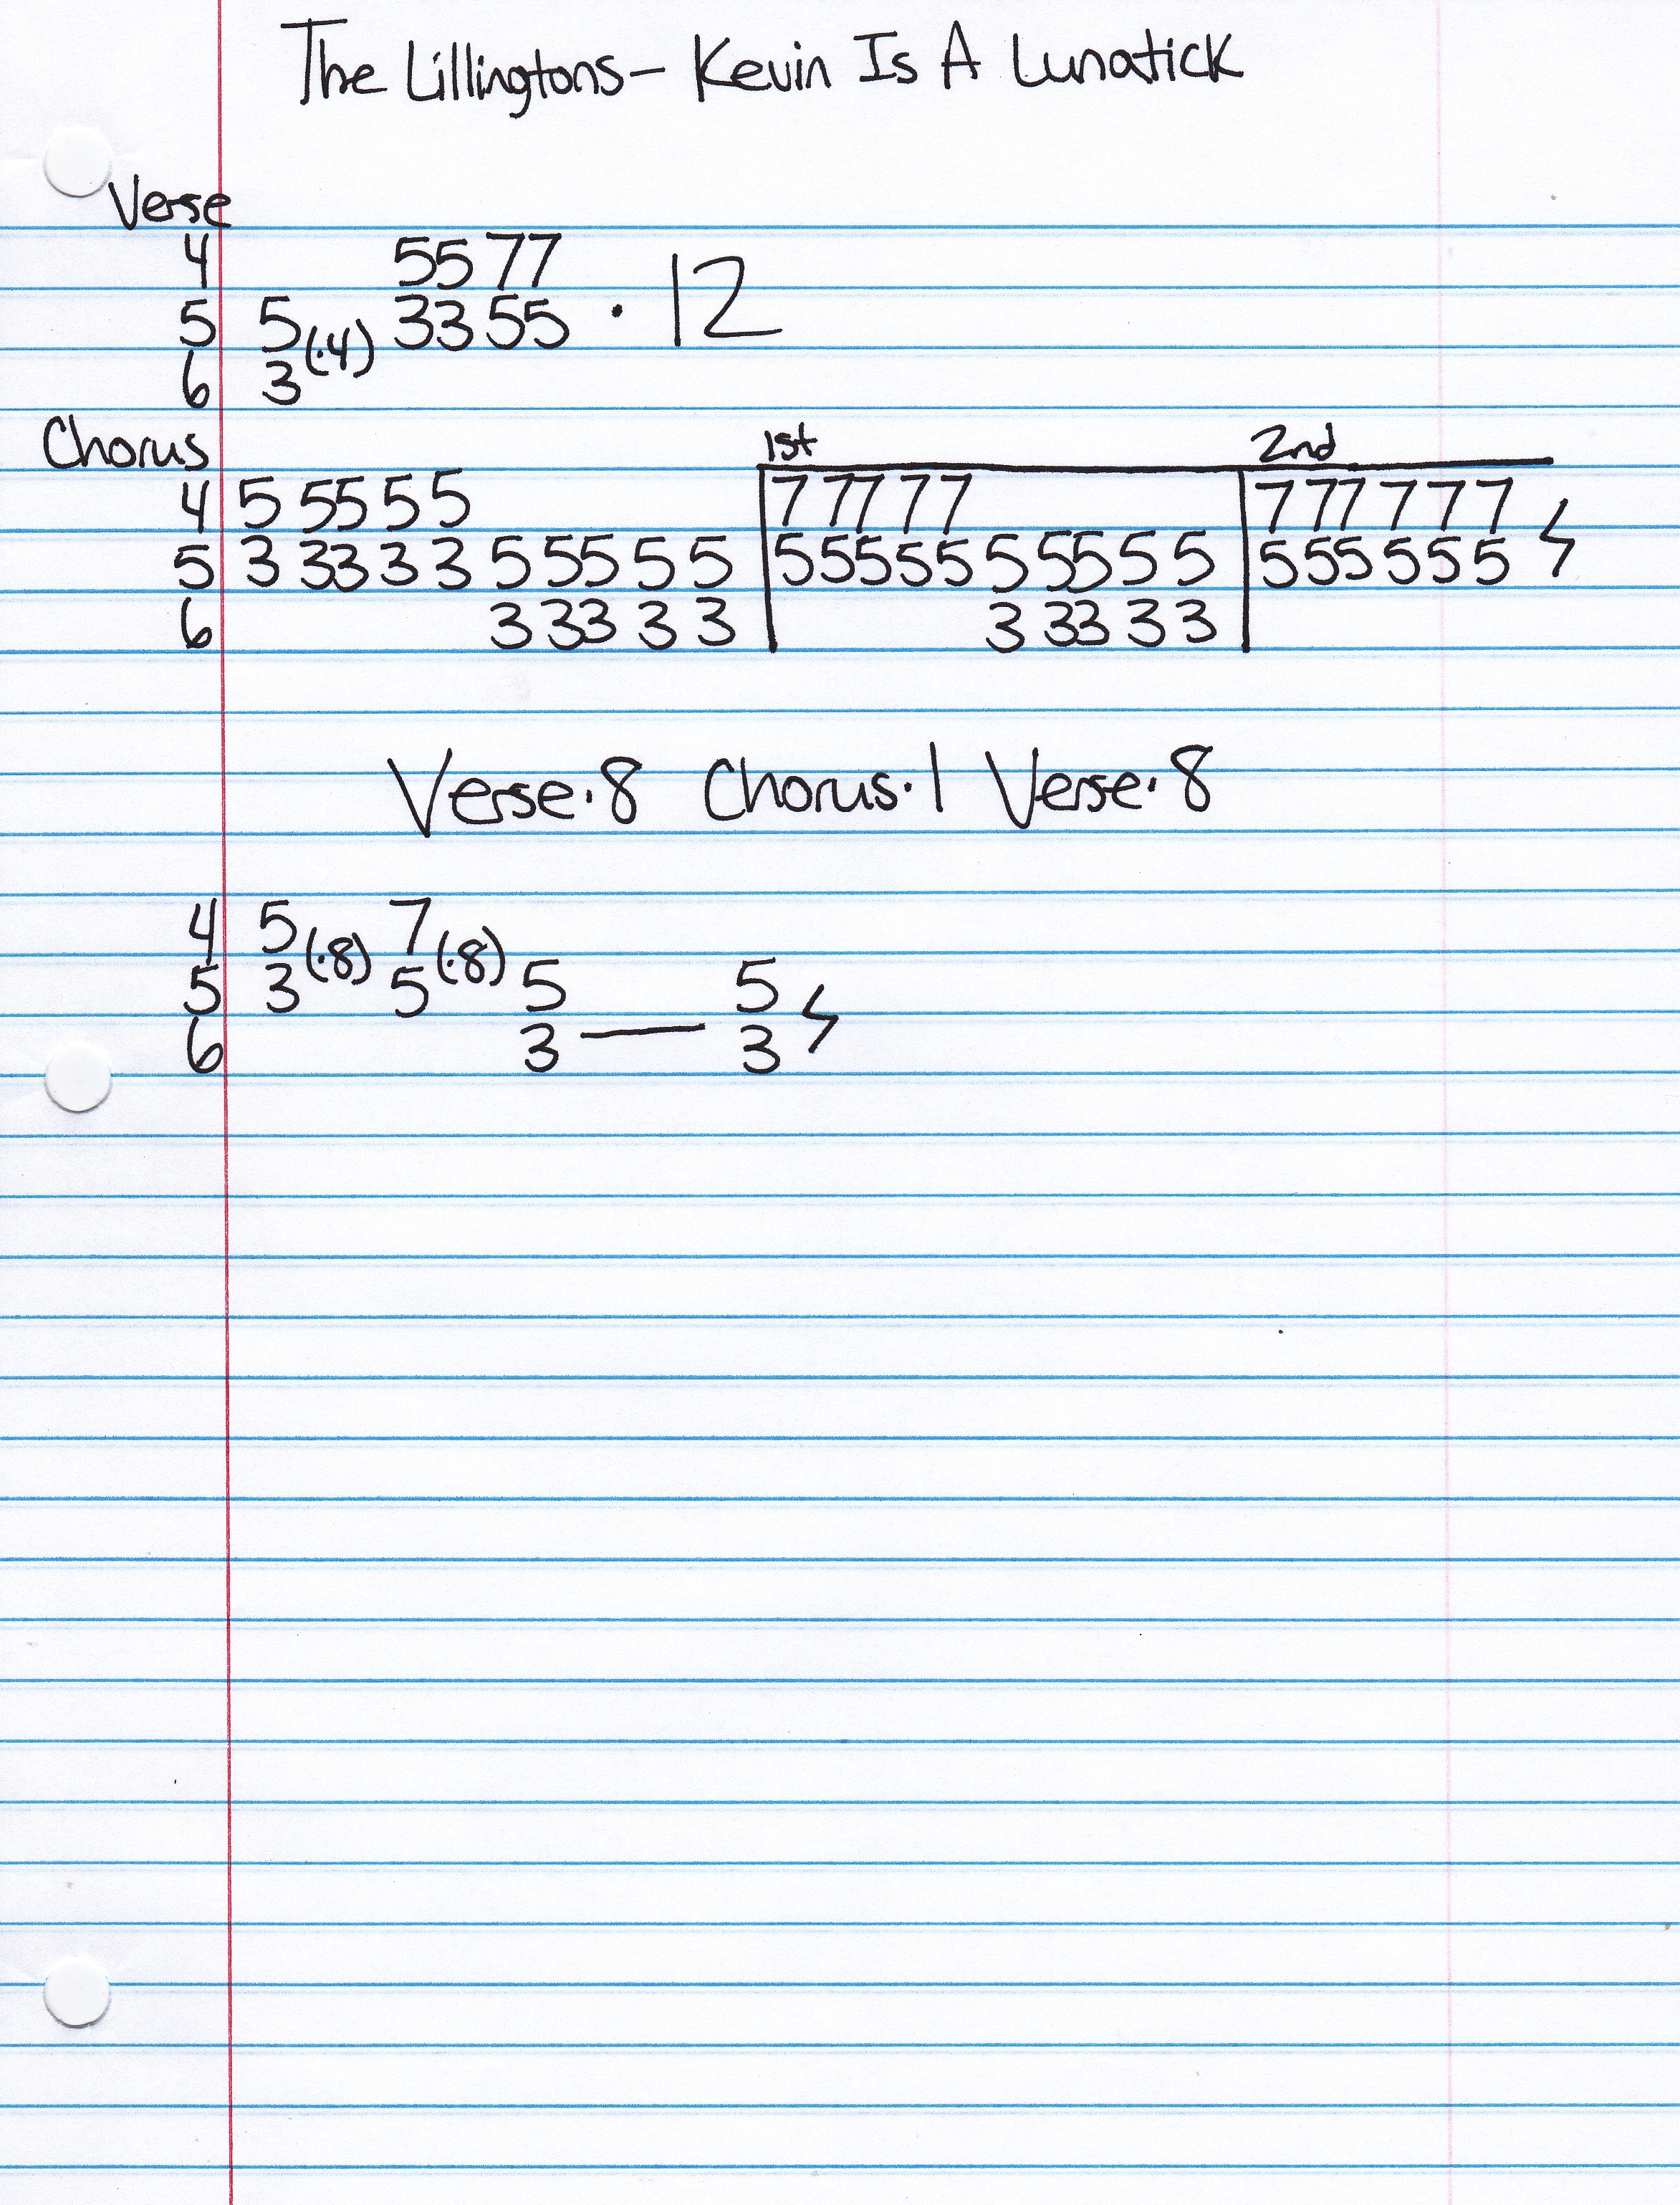 The Lillingtons – Kevin Is A Lunatick
Verse
4 55 77
5 5 (·4) 33 55 · 12
6 3
Chorus 1st 2nd
4 5 55 5 5 7 77 7 7 7 77 7 7 7
5 3 33 3 3 5 55 5 5 5 55 5 5 5 55 5 5 5 55 5 5 5
6 3 33 3 3 3 33 3 3
Verse·8 Chorus·1 Verse·8
4 5 (·8) 7 (·8)
5 3 5 5 5
6 3 — 3